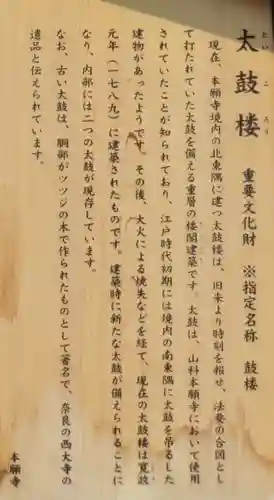 たいころう
太鼓楼 重要文化財 ※指定名称 鼓楼
現在、本願寺境内の北東隅に建つ太鼓楼は、旧来より時刻を報せ、法要の合図とし
て打たれていた太鼓を備える重層の楼閣建築です。太鼓は、山科本願寺において使用
されていたことが知られており、江戸時代初期には境内の南東隅に太鼓を吊るした
建物があったようです。その後、大火による焼失などを経て、現在の太鼓楼は寛政
元年(一七八九)に建築されたものです。建築時に新たな太鼓が備えられることに
なり、内部には二つの太鼓が現存しています。
なお、古い太鼓は、胴部がツツジの木で作られたものとして著名で、奈良の西大寺の
遺品と伝えられています。
本願寺